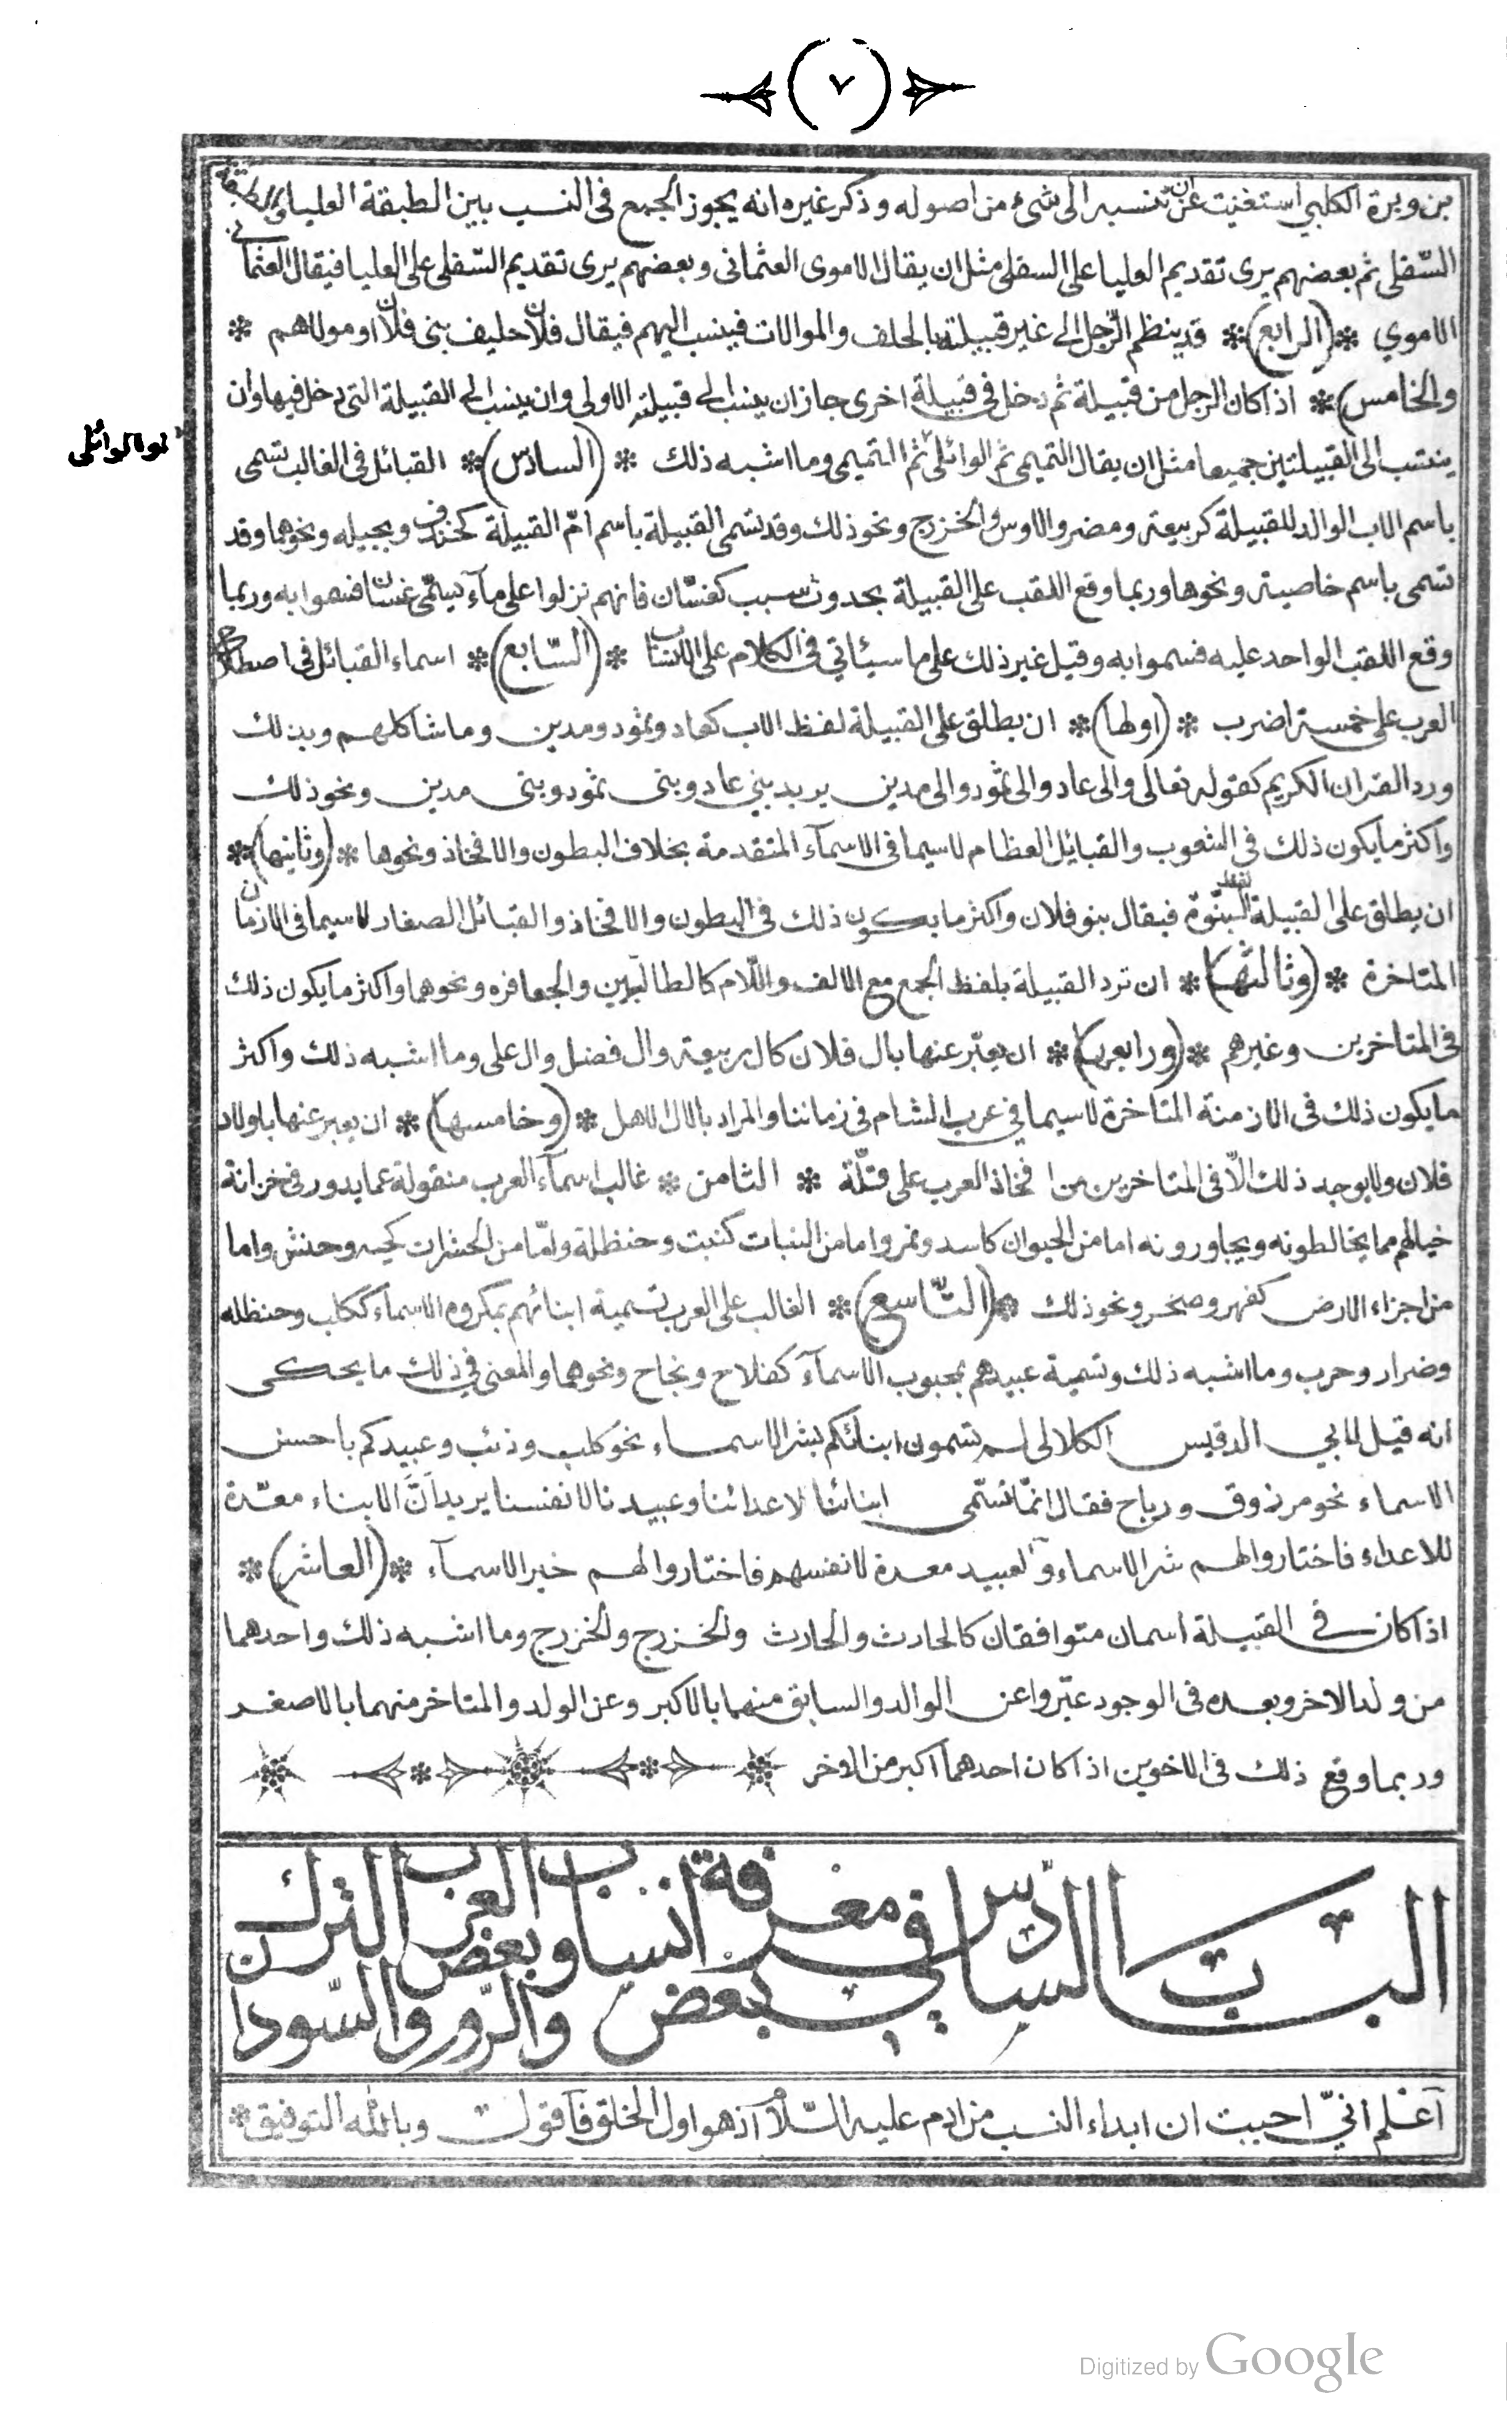 ٧
بن وبرة الكلبي استغنيت عن ان تنسبه الى شئ من اصوله وذكر غيره انه يجوز الجمع فى النسب بين الطبقة العليا والطبقة
السّفلى ثم بعضهم يرى تقديم العليا على السفلى مثل ان يقال الاموى العثمانى وبعضهم يرى تقديم السّفلى على العليا فيقال العثمانى
الاموي * (الرابع) * قد ينظم الرّجل الى غير قبيلته بالحلف والموالات فينسب اليهم فيقال فلان حليف بنى فلان او مولاهم *
والخامس) * اذا كان الرجل من قبيلة ثم دخل فى قبيلة اخرى جاز ان ينسب الى قبيلته الاولى وان ينسب الى القبيلة التى دخل فيها وأن
ينتسب الى القبيلتين جميعا مثل ان يقال التميمى ثم الوائلى ثم التميمى وما اشبه ذلك * (السادس) * القبائل فى الغالب تسمى
باسم الاب الوالد للقبيلة كربيعة ومضر والاوس والخزرج ونحو ذلك وقد تسمى القبيلة باسم امّ القبيلة كخندف وبجيله ونحوهما وقد
تسمى باسم خاصيته ونحوها وربما وقع اللقب على القبيلة بحدوث سبب كغسّان فانهم نزلوا على مآء يسمّى غسان فسموا به وربما
وقع اللقب الواحد عليه فسموا به وقيل غير ذلك على ما سيئاتي فى الكلام على الانساب * (السّابع) * اسماء القبائل فى اصطلاح
العرب على خمسة اضرب * (اولها) * ان يطلق على القبيلة لفظ الاب كعاد وثمود ومدين وما شاكلهم وبذلك
ورد القران الكريم كقوله تعالى والى عاد والى ثمود والى مدين يريد بني عاد وبنى ثمود وبنى مدين ونحو ذلك
واكثر ما يكون ذلك فى الشعوب والقبايل العظام لاسيما فى الاسمآء المتقدمة بخلاف البطون والافخاذ ونحوها * (وثانيها) *
ان يطلق على القبيلة لفظ البنّوة فيقال بنو فلان واكثر ما يكون ذلك فى البطون والافخاذ والقبائل الصغار لاسيما فى الازمان
المتاخرة * (وثالثها) * ان ترد القبيلة بلفظ الجمع مع الالف واللّام كالطالبيين والجعافره ونحوهما واكثر ما يكون ذلك
فى المتاخرين وغيرهم * (ورابعها) * ان يعبّر عنها بال فلان كال ربيعة وال فضل وال على وما اشبه ذلك واكثر
ما يكون ذلك فى الازمنة المتاخرة لاسيما في عرب الشام فى زماننا والمراد بالال الاهل * (وخامسها) * ان يعبر عنها باولاد
فلان ولا يوجد ذلك الّا فى المتاخرين من افخاذ العرب على قلّة * الثامن * غالب اسمآء العرب منقولة عما يدور فى خزانة
خيالهم مما يخالطونه ويجاورونه اما من الحيوان كاسد ونمر واما من النبات كنبت وحنظلة وامّا من الحشرات كحيه وحنش واما
من اجزاء الارض كفهر وصخر ونحو ذلك * (التّاسع) * الغالب على العرب تسمية ابنائهم بمكروه الاسماء ككلب وحنظله
وضرار وحرب وما اشبه ذلك وتسمية عبيدهم بمحبوب الاسمآء كفلاح ونجاح ونحوهما والمعنى في ذلك ما يحكى
انه قيل لابي الدقيس الكلالى لم تسمون ابنائكم بشر الاسماء نحو كلب وذئب وعبيدكم باحسن
الاسماء نحو مرزوق ورباح فقال انمّا نسّمى ابنائنا لاعدائنا وعبيدنا لانفسنا يريد انّ الابناء معدّة
للاعداء فاختاروا لهم شر الاسماء والعبيد معدة لانفسهم فاختاروا لهم خير الاسمآء * (العاشر) *
اذا كان في القبيلة اسمان متوافقان كالحارث والحارث والخزرج والخزرج وما اشبه ذلك واحدهما
من ولد الاخر وبعده فى الوجود عبّروا عن الوالد والسابق منهما بالاكبر وعن الولد والمتاخر منهما بالاصغر
وربما وقع ذلك فى الاخوين اذا كان احدهما اكبر من الاخر
الباب السادس في معرفة انساب العرب وبعض الترك
وبعض والرّوم والسّودان
آعْلم انيّ احببت ان ابداء النسب من ادم عليه السّلام آذ هو اول الخلق فآقول وبالله التوفيق *
Digitized by Google